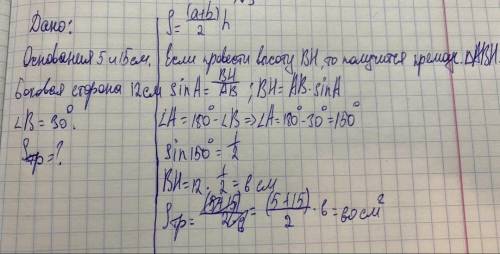 Дано:
Основания 5 и 15 см.
Боковая сторона 12 см
∠B = 30°.
Sтр = ?
S = (a+b)/2 h
Если провести высоту BH, то получится прямоуг. ΔABH.
sin A = BH/AB ; BH = AB · sin A
∠A = 180° - ∠B => ∠A = 180° - 30° = 150°
sin 150° = 1/2
BH = 12 · 1/2 = 6 см
Sтр = (5+15)/2 · 6 = 60 см²